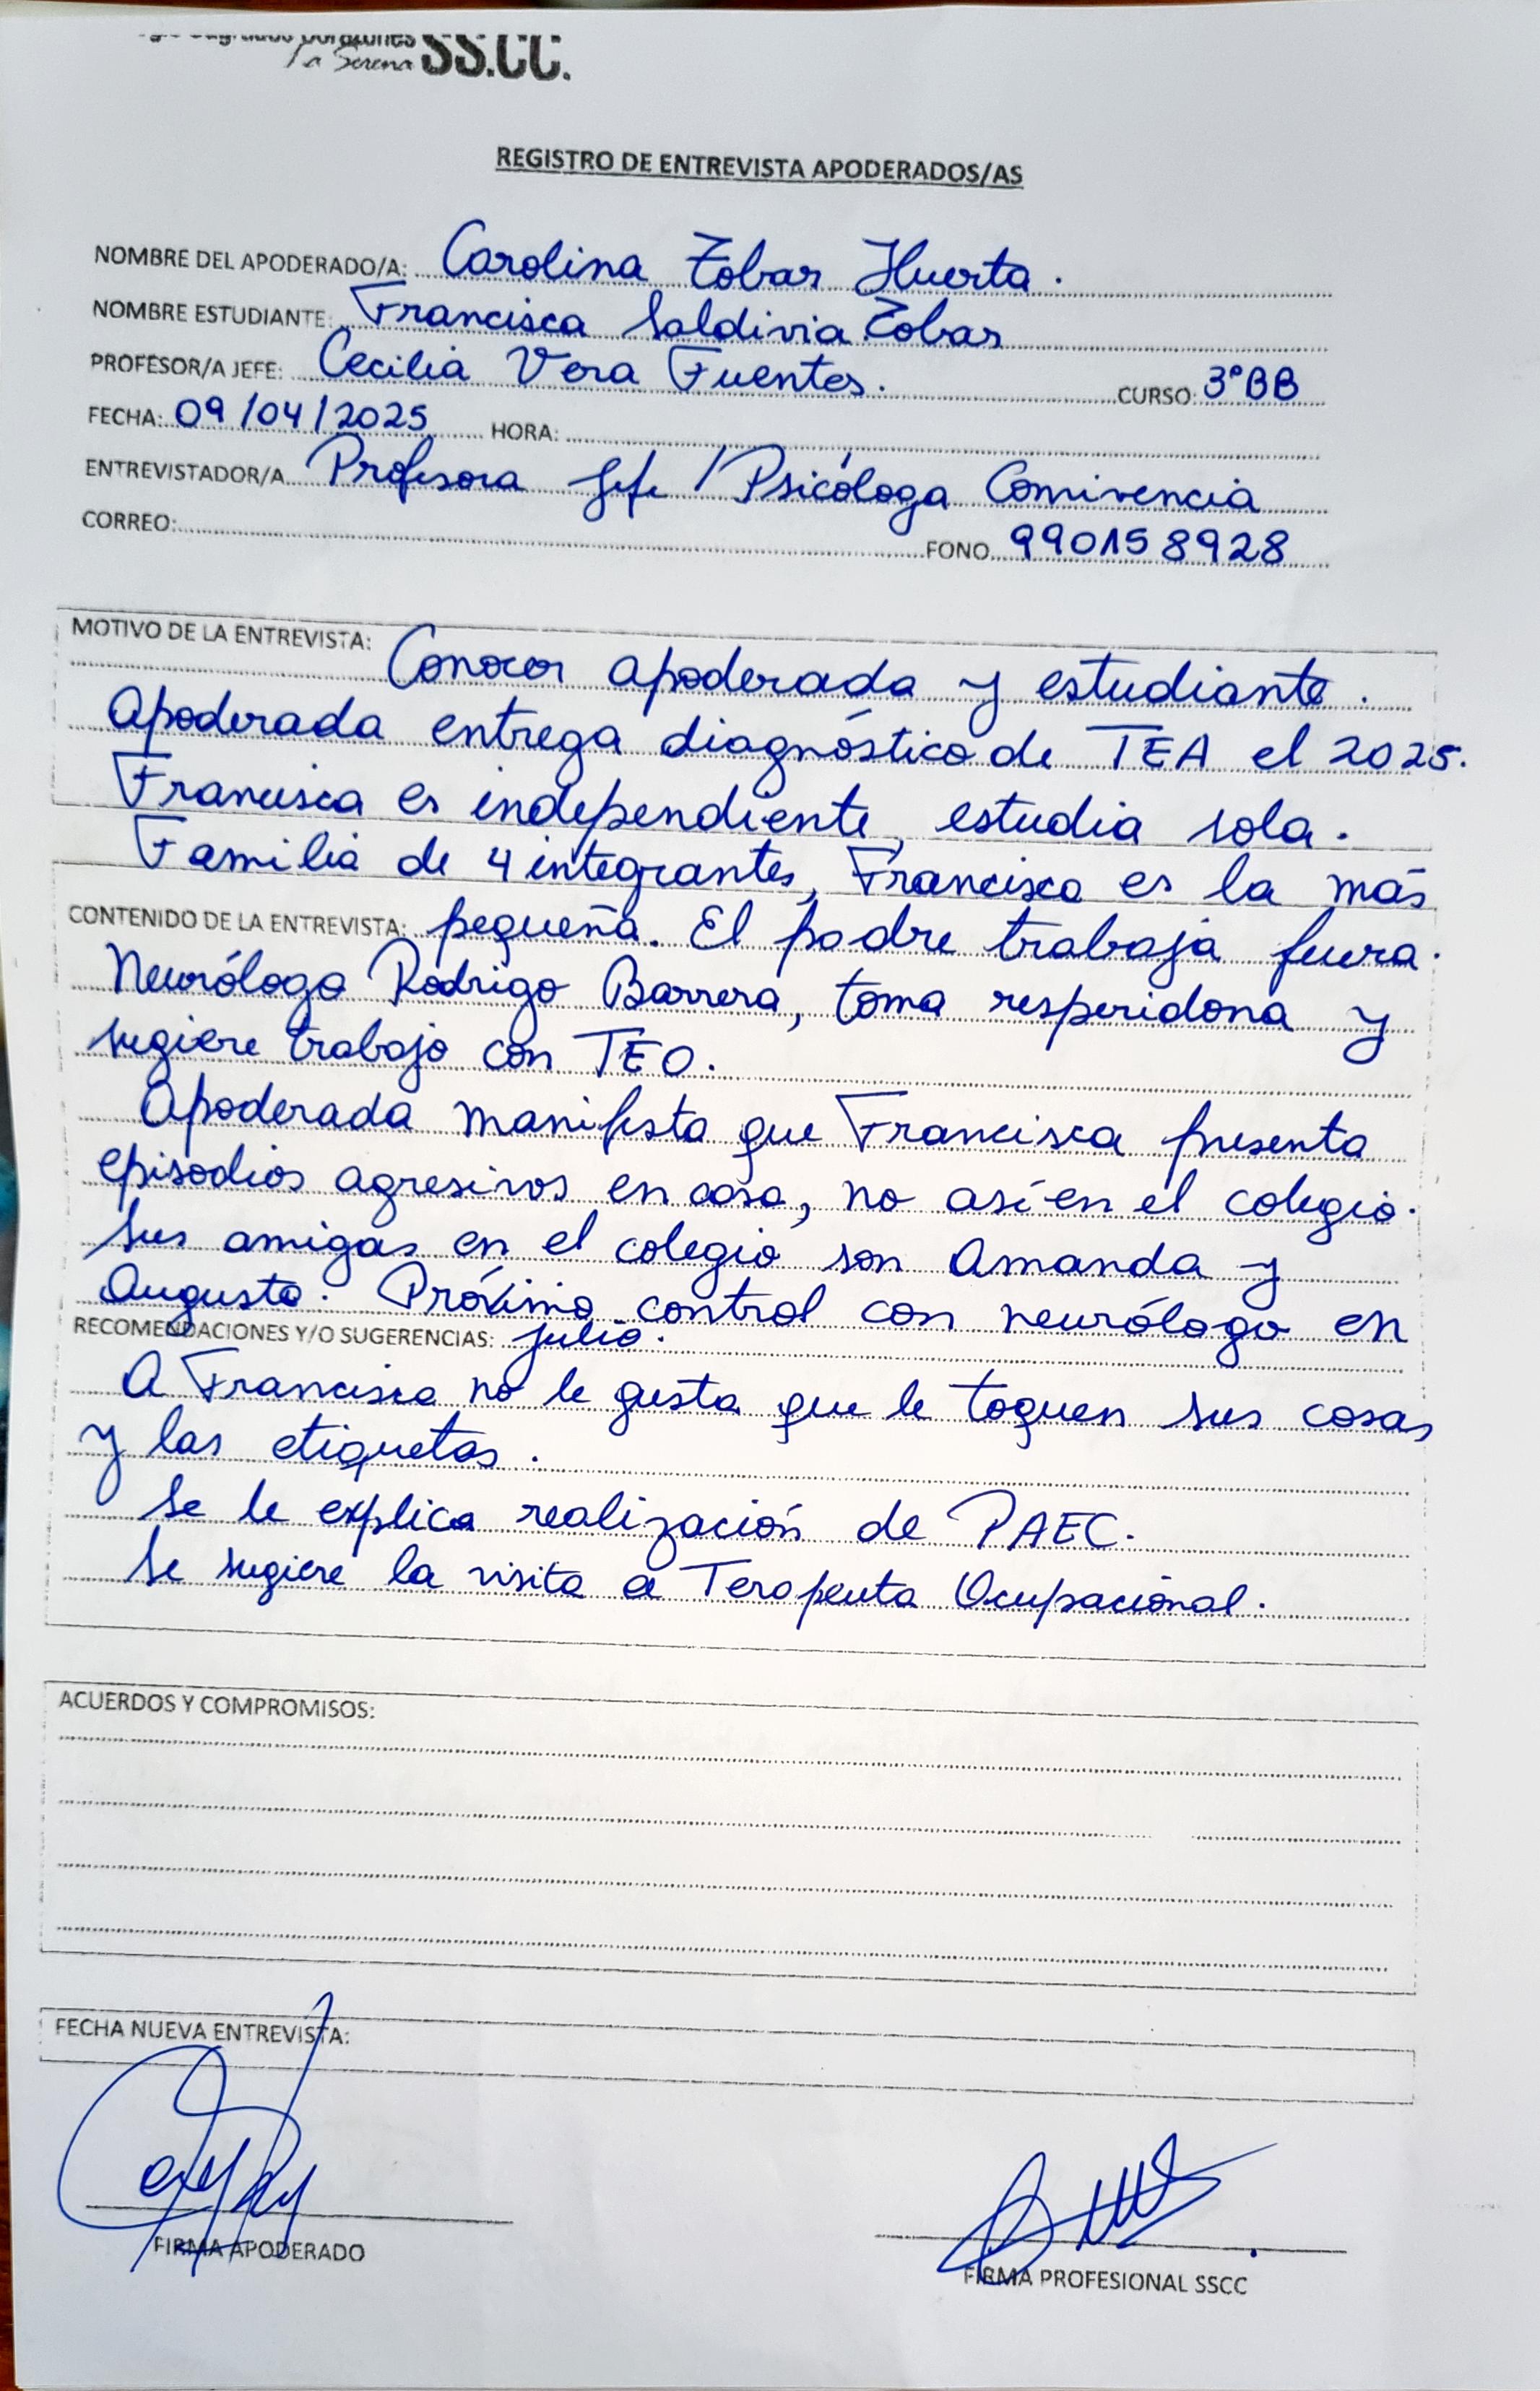 Sagrados Corazones
La Serena SS.CC.
REGISTRO DE ENTREVISTA APODERADOS/AS
NOMBRE DEL APODERADO/A: Carolina Zobar Huerta.
NOMBRE ESTUDIANTE: Francisca Saldivia Zobar
PROFESOR/A JEFE: Cecilia Vera Fuentes. CURSO: 3°BB
FECHA: 09/04/2025 HORA:
ENTREVISTADOR/A Profesora Jefe / Psicóloga Convivencia
CORREO: FONO 990158928
MOTIVO DE LA ENTREVISTA: Conocer apoderada y estudiante.
Apoderada entrega diagnóstico de TEA el 2025.
Francisca es independiente, estudia sola.
Familia de 4 integrantes, Francisca es la más
CONTENIDO DE LA ENTREVISTA: pequeña. El padre trabaja fuera.
Neurólogo Rodrigo Barrera, toma resperidona y
sugiere trabajo con TEO.
Apoderada manifesta que Francisca presenta
episodios agresivos en casa, no así en el colegio.
Sus amigas en el colegio son Amanda y
Augusta. Próximo control con neurólogo en
RECOMENDACIONES Y/O SUGERENCIAS: julio.
A Francisca no le gusta que le toquen sus cosas
y las etiquetas.
Se le explica realización de PAEC.
Se sugiere la visita a Terapeuta Ocupacional.
ACUERDOS Y COMPROMISOS:
FECHA NUEVA ENTREVISTA:
FIRMA APODERADO
FIRMA PROFESIONAL SSCC